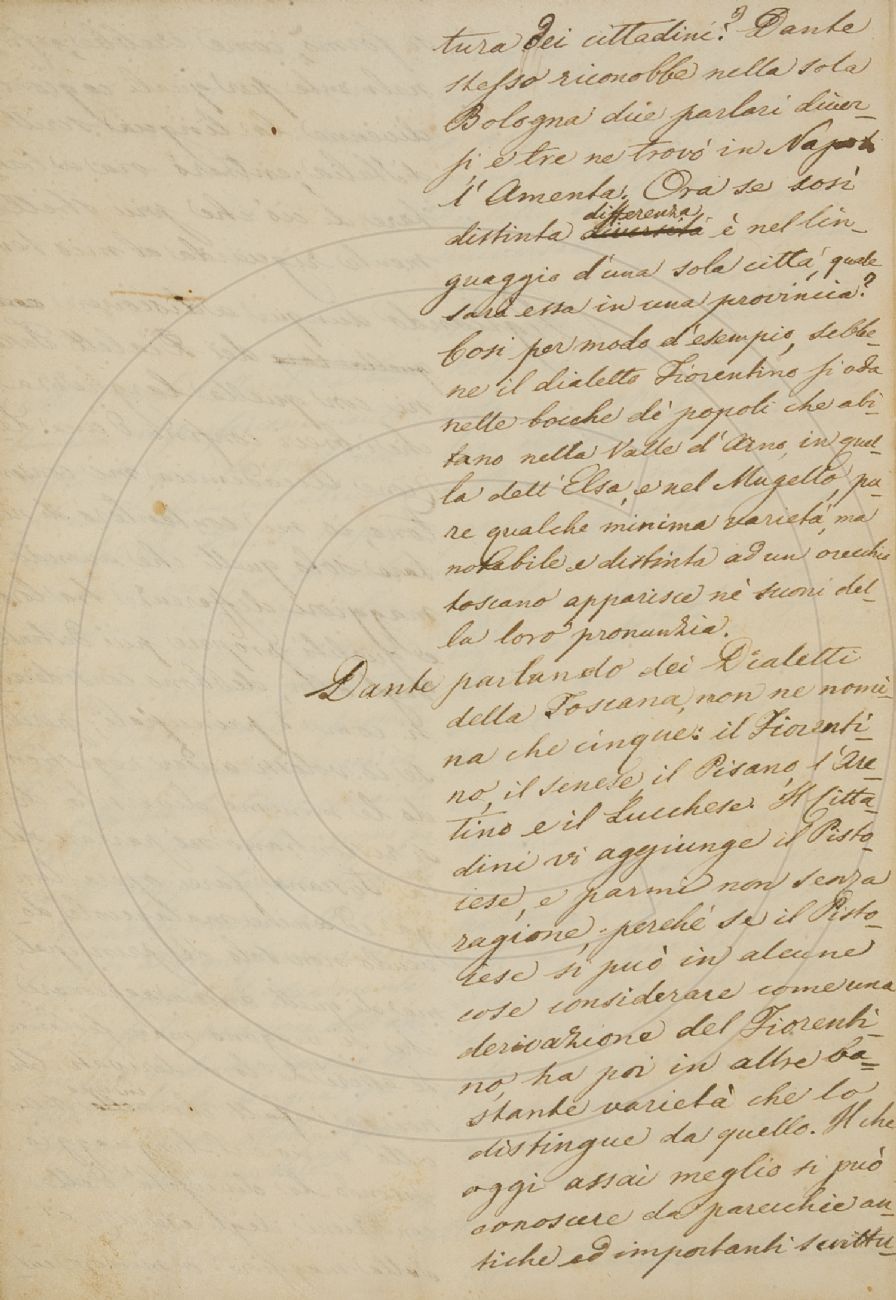 tura dei cittadini? Dante
stesso riconobbe nella sola
Bologna due parlari diver-
si e tre ne trovò in Napoli
l'Amenta. Ora se così
differenza
distinta diversità è nel lin-
guaggio d'una sola città, quale
sarà essa in una provincia?
Così per modo d'esempio, sebbe-
ne il dialetto Fiorentino si oda
nelle bocche de' popoli che abi-
tano nella Valle d'Arno, in quel-
la dell'Elsa, e nel Mugello, pu-
re qualche minima varietà, ma
notabile e distinta ad un orecchio
toscano apparisce ne' suoni del-
la loro pronunzia.
Dante parlando dei Dialetti
della Toscana, non ne nomi-
na che cinque: il Fiorenti-
no, il senese, il Pisano, l'Are-
tino e il Lucchese. Il Citta-
dini vi aggiunge il Pisto-
iese, e parmi non senza
ragione, perchè se il Pisto-
iese si può in alcune
cose considerare come una
derivazione del Fiorenti-
no, ha poi in altre ba-
stante varietà che lo
distingue da quello. Il che
oggi assai meglio si può
conoscere da parecchie an-
tiche ed importanti scrittu-